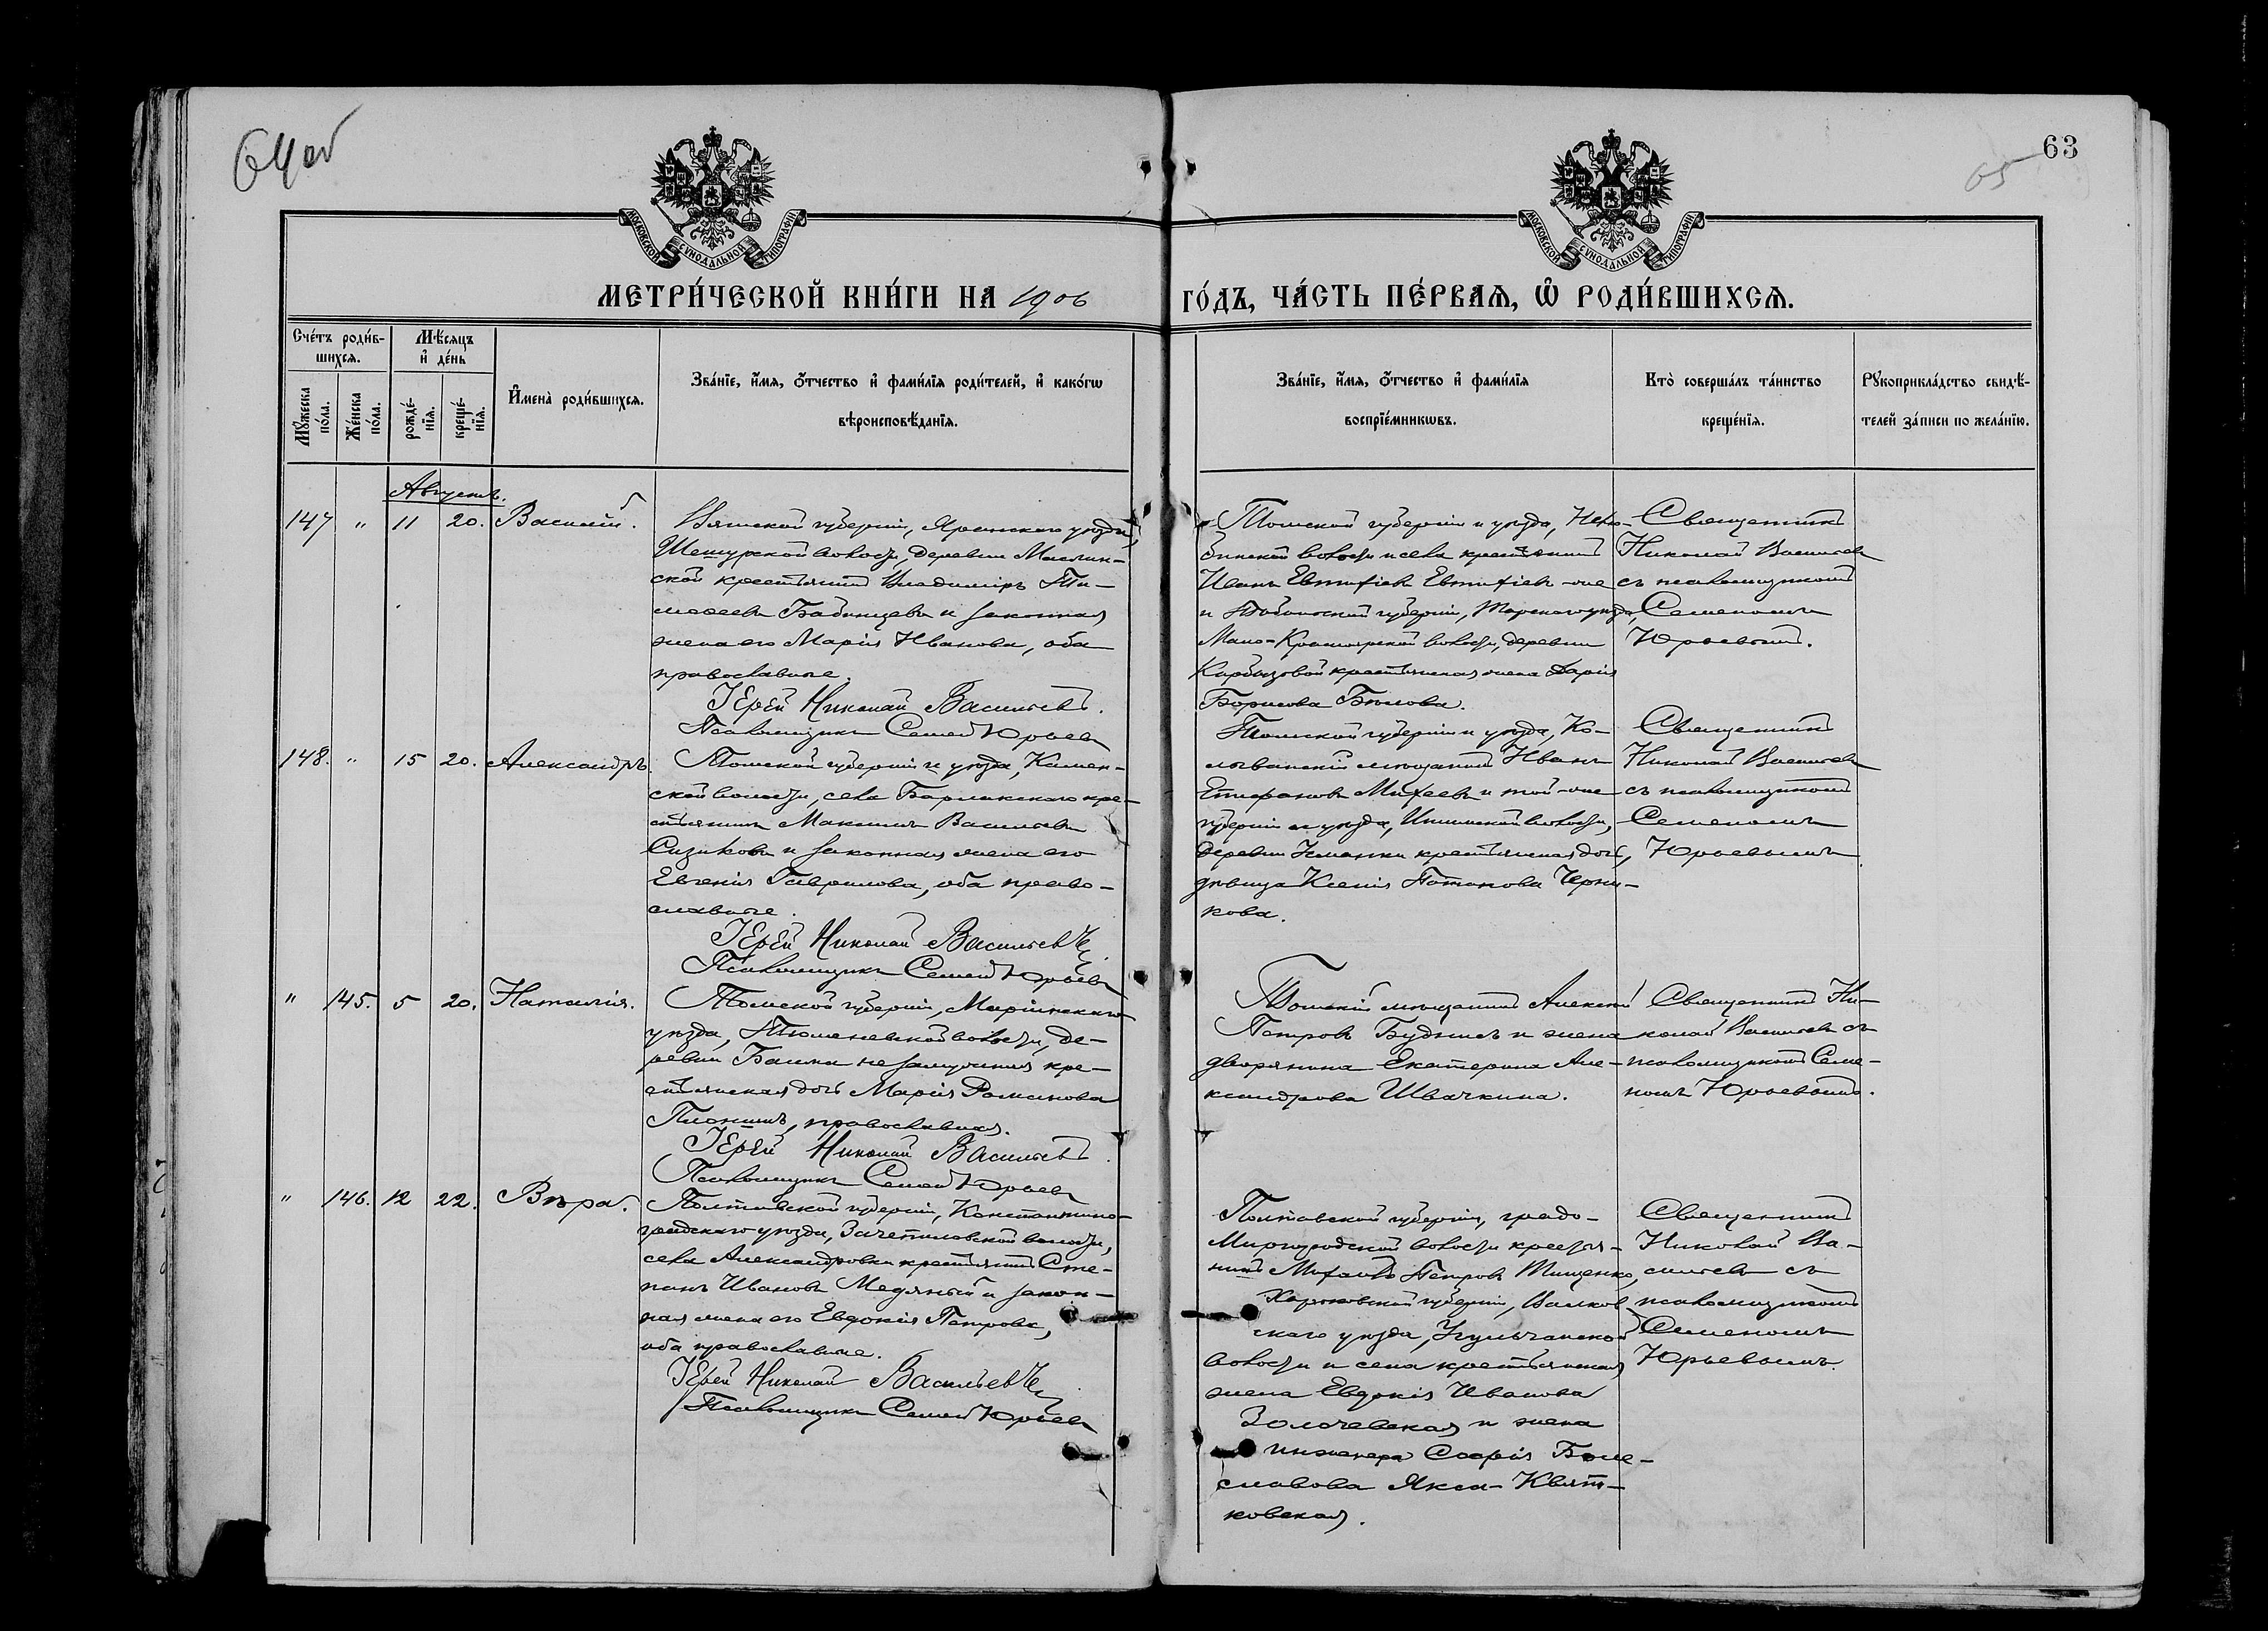 64об
63
65
МОСКОВСКОЙ СѴНОДАЛЬНОЙ ТИПОГРАФІИ
МОСКОВСКОЙ СѴНОДАЛЬНОЙ ТИПОГРАФІИ
МЕТРИ́ЧЕСКОЙ КНИ́ГИ НА 1906
ГО́ДЪ, ЧА́СТЬ ПЕ́РВАѦ, Ѽ РОДИ́ВШИХСѦ.
Сче́тъ роди́в-
шихсѧ.
Мѣ́сяцъ
и҆ де́нь
Мꙋ́жеска по́ла.
Же́нска по́ла.
рожде́-
нїѧ.
креще́-
нїѧ.
И҆мена̀ роди́вшихсѧ.
Зва́нїе, и҆́мѧ, ѻ҆́тчество и҆ фами́лїѧ роди́телей, и҆ како́гѡ
вѣроисповѣ́данїѧ.
Зва́нїе, и҆́мѧ, ѻ҆́тчество и҆ фами́лїѧ
воспрїе́мникѡвъ.
Кто̀ соверша́лъ та́инство
креще́нїѧ.
Рꙋкоприкла́дство свидѣ́-
телей за́писи по жела́нїю.
Августъ.
147 " 11 20. Василій.
Вятской губерніи, Яранскаго уѣзда,
волости, деревни
ской крестьянинъ Владиміръ Ти-
моѳеевъ Бабинцевъ и законная
жена его Марія Иванова, оба
православные.
Іерей Николай Васильевъ.
Псаломщикъ Семенъ Юрьевъ
Томской губерніи и уѣзда, Нелю-
бинской волости и села крестьянинъ
Иванъ Евтифіевъ Евтифіевъ -же
и Тобольской губерніи, Тарскаго уѣзда,
Мало-Красноярской волости, деревни
крестьянская жена Дарія
Борисова Бѣлова.
Священникъ
Николай Васильевъ
съ псаломщикомъ
Семеномъ
Юрьевымъ.
148. " 15 20. Александръ.
Томской губерніи и уѣзда, Камен-
ской волости, села Барлакскаго кре-
стьянинъ Максимъ Васильевъ
Сизиковъ и законная жена его
Евгенія Гаврилова, оба право-
славные.
Іерей Николай Васильевъ
Псаломщикъ Семенъ Юрьевъ
Томской губерніи и уѣзда, Ко-
лыванскій мѣщанинъ Иванъ
Епифановъ Михеевъ и той-же
губерніи и уѣзда, Ишимской волости,
деревни Усманки крестьянская дочь,
дѣвица Ксенія Потапова Черни-
кова.
Священникъ
Николай Васильевъ
съ псаломщикомъ
Семеномъ
Юрьевымъ
" 145. 5 20. Наталія.
Томской губерніи, Маріинскаго
уѣзда, Тюменевской волости, де-
ревни незамужняя кре-
стьянская дочь Марія Романова
православная.
Іерей Николай Васильевъ
Псаломщикъ Семенъ Юрьевъ
Томскій мѣщанинъ Алексѣй
Петровъ и жена
дворянина Екатерина Але-
ксандрова Швачкина.
Священникъ Ни-
колай Васильевъ съ
псаломщикомъ Семе-
номъ Юрьевымъ.
" 146. 12 22. Вѣра.
Полтавской губерніи, Константино-
градскаго уѣзда, Зачепиловской волости,
села Александровки крестьянинъ Сте-
панъ Ивановъ Медяный и закон-
ная жена его Евдокія Петрова,
оба православные.
Іерей Николай Васильевъ
Псаломщикъ Семенъ Юрьевъ
Полтавской губерніи, градо-
Миргородской волости крестья-
нинъ Михаилъ Петровъ Тищенко,
Харьковской губерніи, Валков
скаго уѣзда, Угольчанской
волости и села крестьянская
жена Евдокія Иванова
Золочевская и жена
инженера Софія Боле-
славова Якса-Квят-
ковская.
Священникъ
Николай Ва-
сильевъ съ
псаломщикомъ
Семеномъ
Юрьевымъ.